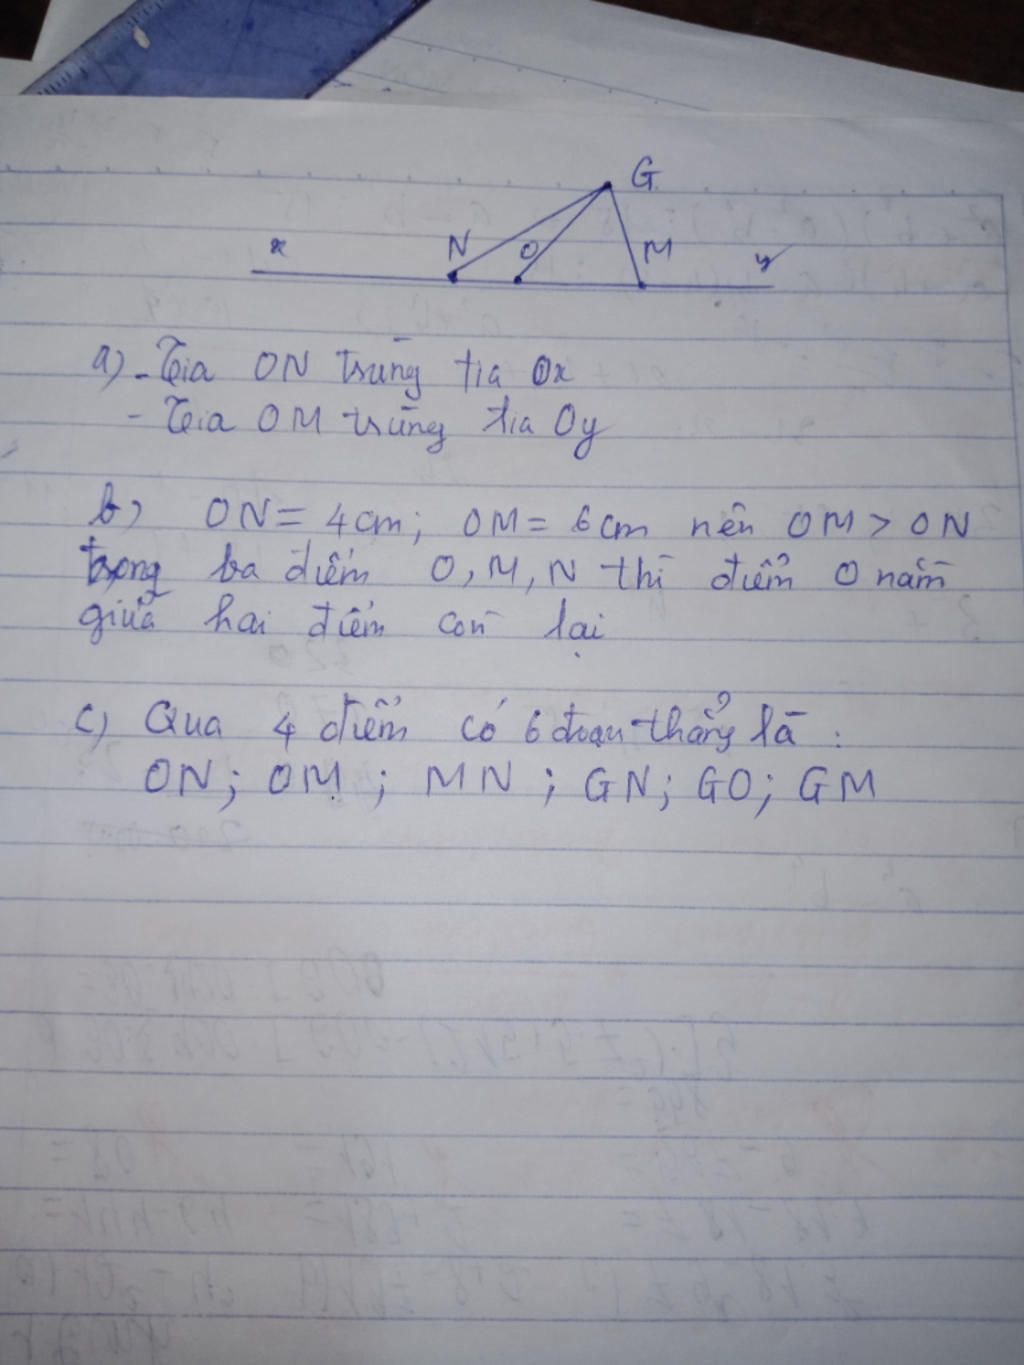 G
x N O M y
a) - Tia ON trùng tia Ox
- Tia OM trùng tia Oy
b) ON = 4cm; OM = 6cm nên OM > ON
trong ba điểm O, M, N thì điểm O nằm
giữa hai điểm còn lại
c) Qua 4 điểm có 6 đoạn thẳng là :
ON; OM; MN; GN; GO; GM